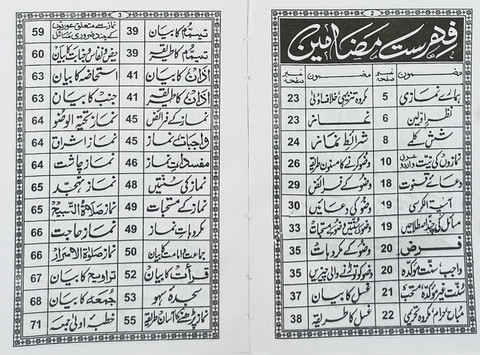 2
فہرست مضامین
مضمون صفحہ نمبر مضمون صفحہ نمبر
ہمارے نمازی 5 مکروہ تنزیہی خلاف اولیٰ 23
نظر اولین 6 نماز 23
شش کلمے 8 شرائط نماز 24
نمازوں کی نیت 10 وضو کرنے کا مسنون طریقہ 26
دعائے قنوت 18 وضو کے فرائض 29
آیۃ الکرسی 19 وضو کی دعائیں 30
مسائل کی چند اصطلاحیں 19 وضو کی سنتیں وضو کے مستحبات 33
فرض 20 وضو کے مکروہات 35
واجب، سنت مؤکدہ 20 وضو کو توڑنے والی چیزیں 35
سنت غیر مؤکدہ، مستحب 21 غسل کا بیان 37
مباح حرام مکروہ تحریمی 22 غسل کا طریقہ 38
3
تیمم کا بیان 39 نماز سے متعلق عورتوں کے چند ضروری مسائل 59
تیمم کا طریقہ 39 حیض و نفاس و جنابت کا بیان 60
اذان کا بیان 41 استحاضہ کا بیان 63
اذان کا طریقہ 41 جنب کا بیان 63
نماز کے فرائض 45 نماز تحیۃ الوضو 64
واجبات نماز 45 نماز اشراق 64
مفسدات نماز 46 نماز چاشت 64
نماز کی سنتیں 48 نماز تہجد 65
نماز کے مستحبات 49 نماز صلاۃ التسبیح 65
مکروہات نماز 49 نماز حاجت 66
جماعت و امامت کا بیان 50 نماز صلوٰۃ الاسرار 66
قرأت کا بیان 52 تراویح کا بیان 67
سجدہ سہو 53 جمعہ کا بیان 68
نماز پڑھنے کا آسان طریقہ 55 خطبہ اولیٰ جمعہ 71